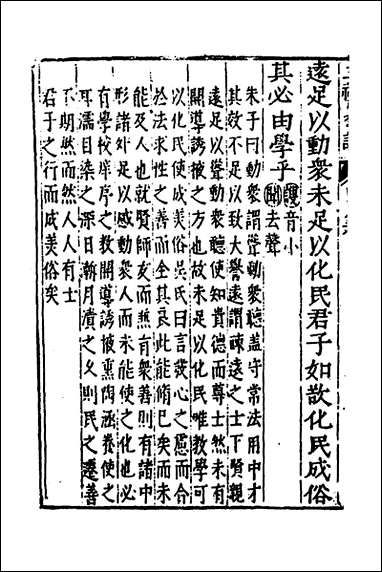 遠足以動衆未足以化民君子如欲化民成俗
其必由學乎謏音小聞去聲
朱子曰動衆謂聳動衆聽蓋守常法用中才
其效不足以致大譽遠謂疎遠之士下賢親
遠足以聳動衆聽使知貴德而尊士然未有
開導誘掖之方也故未足以化民唯教學可
以化民使成美俗吳氏曰言發心之慮而合
於法求性之善而全其良此能脩已矣而未
能及人也就賢師友而兼有衆善則有諸中
形諸外足以感動衆人而未能使之化也必
有學校庠序之教開導誘掖熏陶涵養使之
耳濡目染之深日漸月漬之久則民之遷善
不期然而然人人有士
君子之行而成美俗矣